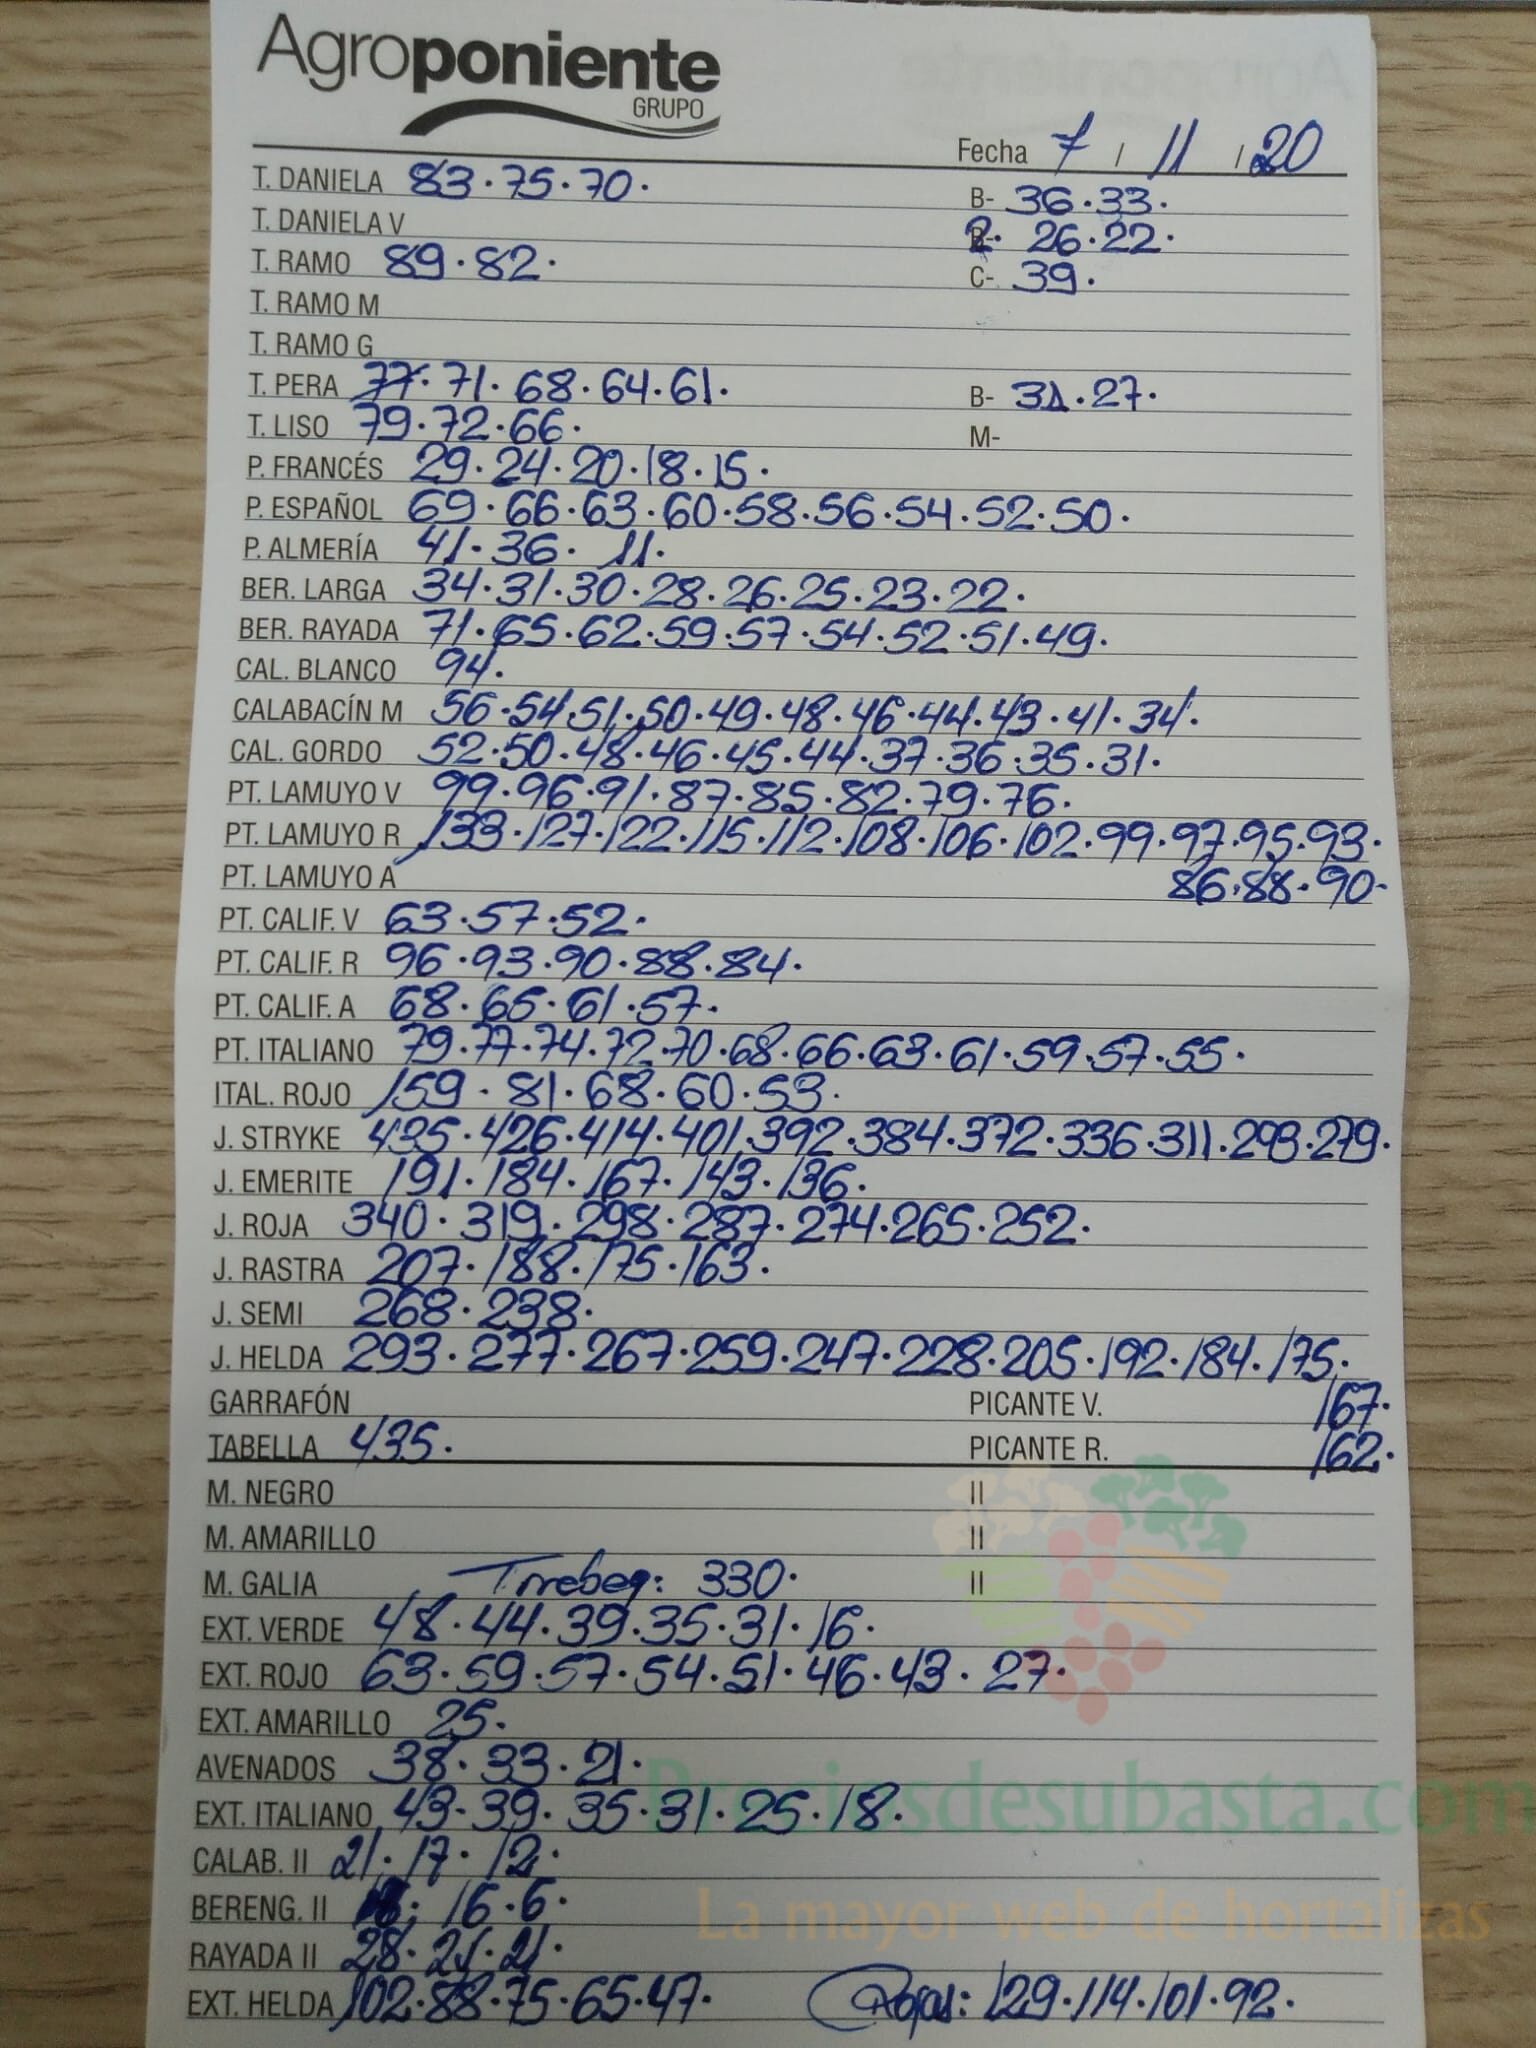 Agroponiente
GRUPO
Fecha 7 / 11 / 20
T. DANIELA 83·75·70· B- 36·33·
T. DANIELA V 2· 26·22·
T. RAMO 89·82· C- 39·
T. RAMO M
T. RAMO G
T. PERA 77·71·68·64·61· B- 31·27·
T. LISO 79·72·66· M-
P. FRANCÉS 29·24·20·18·15·
P. ESPAÑOL 69·66·63·60·58·56·54·52·50·
P. ALMERÍA 41·36·11·
BER. LARGA 34·31·30·28·26·25·23·22·
BER. RAYADA 71·65·62·59·57·54·52·51·49·
CAL. BLANCO 94·
CALABACÍN M 56·54·51·50·49·48·46·44·43·41·34·
CAL. GORDO 52·50·48·46·45·44·37·36·35·31·
PT. LAMUYO V 99·96·91·87·85·82·79·76·
PT. LAMUYO R 133·127·122·115·112·108·106·102·99·97·95·93·
PT. LAMUYO A 86·88·90·
PT. CALIF. V 63·57·52·
PT. CALIF. R 96·93·90·88·84·
PT. CALIF. A 68·65·61·57·
PT. ITALIANO 79·77·74·72·70·68·66·63·61·59·57·55·
ITAL. ROJO 159·81·68·60·53·
J. STRYKE 435·426·414·401·392·384·372·336·311·293·279·
J. EMERITE 191·184·167·143·136·
J. ROJA 340·319·298·287·274·265·252·
J. RASTRA 207·188·175·163·
J. SEMI 268·238·
J. HELDA 293·277·267·259·247·228·205·192·184·175·
GARRAFÓN PICANTE V. 167·
TABELLA 435· PICANTE R. 162·
M. NEGRO II
M. AMARILLO II
M. GALIA 330· II
EXT. VERDE 48·44·39·35·31·16·
EXT. ROJO 63·59·57·54·51·46·43·27·
EXT. AMARILLO 25·
AVENADOS 38·33·21·
EXT. ITALIANO 43·39·35·31·25·18·
CALAB. II 21·17·12·
BERENG. II 16·6·
RAYADA II 28·21·
EXT. HELDA 102·88·75·65·47· Rojas: 129·114·101·92·
Preciosdesubasta.com
La mayor web de hortalizas